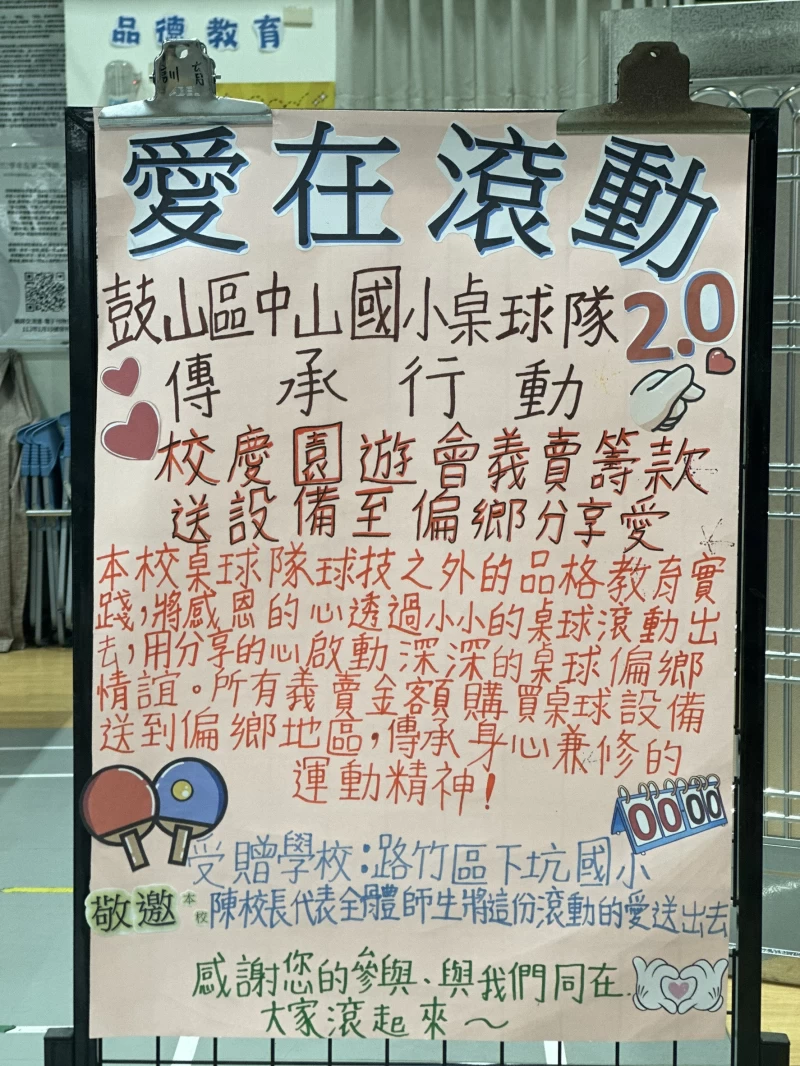 品德教育
訓育
愛在滾動
鼓山區中山國小桌球隊2.0
傳承行動
校慶園遊會義賣籌款
送設備至偏鄉分享愛
本校桌球隊球技之外的品格教育實
踐,將感恩的心透過小小的桌球滾動出
去,用分享的心啟動深深的桌球偏鄉
情誼。所有義賣金額購買桌球設備
送到偏鄉地區,傳承身心兼修的
運動精神!
00 00
受贈學校:路竹區下坑國小
敬邀 本校 陳校長代表全體師生將這份滾動的愛送出去
感謝您的參與、與我們同在
大家滾起來～